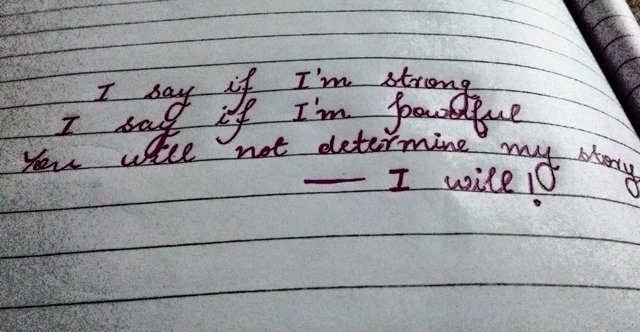 I say if I'm strong
I say if I'm powerful
You will not determine my story
— I will!